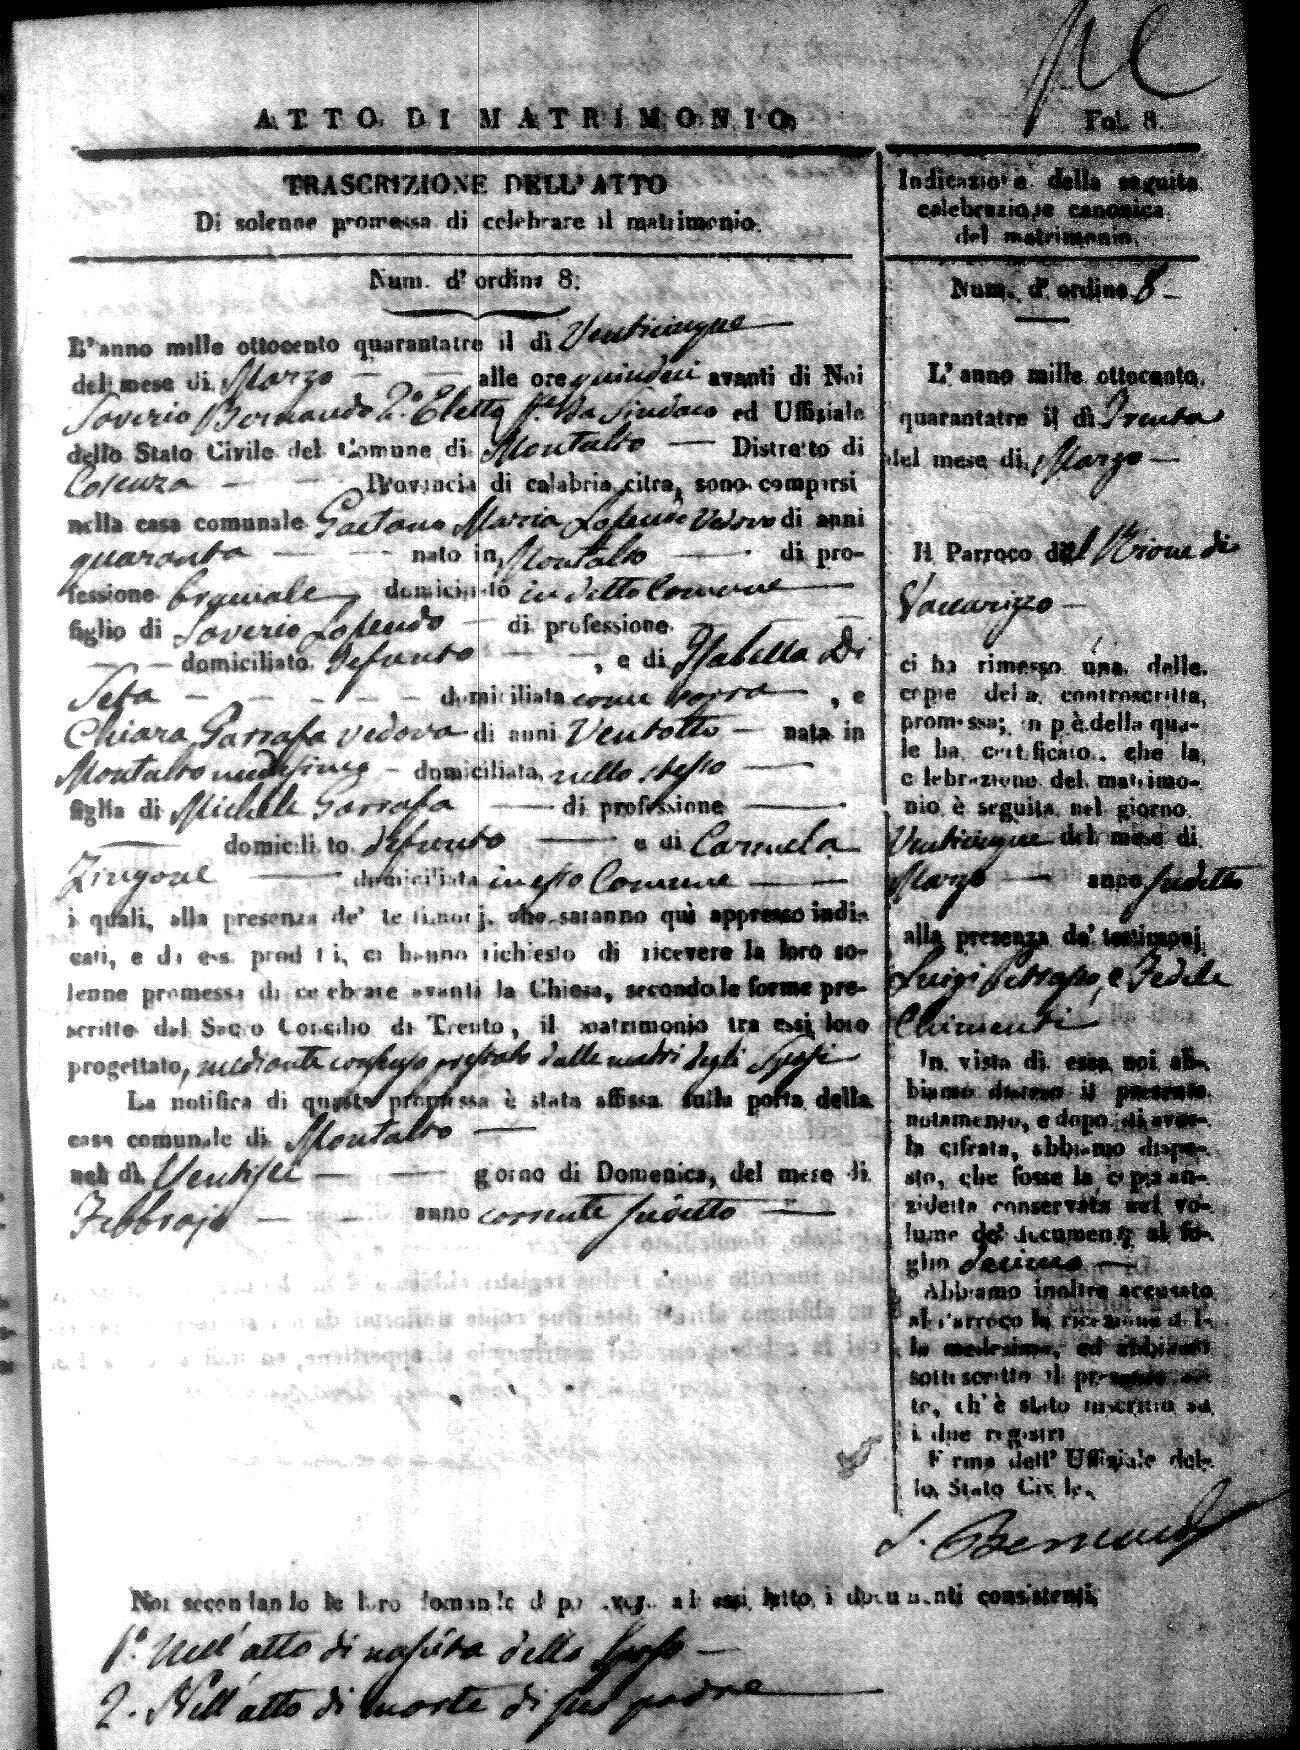 ATTO DI MATRIMONIO
Fol. 8.
TRASCRIZIONE DELL'ATTO
Di solenne promessa di celebrare il matrimonio.
Num. d'ordine 8.
L'anno mille ottocento quarantatre il dì Venticinque
del mese di Marzo alle ore quindici avanti di Noi
Saverio Bernaudo 2.° Eletto ff. Da Sindaco ed Uffiziale
dello Stato Civile del Comune di Montalto Distretto di
Cosenza Provincia di calabria citra, sono comparsi
nella casa comunale Gaetano Maria vedovo di anni
quaranta nato in Montalto di pro-
fessione bracciale domiciliato in detto Comune
figlio di Saverio di professione
domiciliato defunto , e di Isabella Di
Seta domiciliata come sopra , e
Chiara Garrafa vedova di anni Ventotto nata in
Montalto medesimo domiciliata nello stesso
figlia di Michele Garrafa di professione
domiciliato defunto e di Carmela
Zingone domiciliata in esso Comune
i quali, alla presenza de' testimonj, che saranno quì appresso indi-
cati, e da essi prodotti, ci hanno richiesto di ricevere la loro so-
lenne promessa di celebrare avanti la Chiesa, secondo le forme pre-
scritte dal Sacro Concilio di Trento, il matrimonio tra essi loro
progettato, mediante consenso prestato dalle madri degli Sposi
La notifica di questa promessa è stata affissa sulla porta della
casa comunale di Montalto
nel dì Ventisei giorno di Domenica, del mese di
Febbrajo anno corrente sudetto
Indicazione della seguita
celebrazione canonica
del matrimonio.
Num. d'ordine 8
L'anno mille ottocento
quarantatre il dì Trenta
del mese di Marzo
Il Parroco del Rione di
Vaccarizzo
ci ha rimesso una delle
copie della controscritta
promessa; in piè della qua-
le ha certificato, che la
celebrazione del matrimo-
nio è seguita nel giorno
Venticinque del mese di
Marzo anno sudetto
alla presenza de' testimonj
Luigi e Fedele
Chimenti
In vista di essa noi ab-
biamo disteso il presente
notamento, e dopo di aver-
la cifrata, abbiamo dispo-
sto, che fosse la copia an-
zidetta conservata nel vo-
lume de' documenti al fo-
glio decimo
Abbiamo inoltre accusato
al Parroco la ricezione del-
la medesima, ed abbiamo
sottoscritto il presente at-
to, ch'è stato inscritto su
i due registri
Firma dell'Uffiziale del-
lo Stato Civile.
S. Bernaudo
Noi secondando le loro domande dopo aver ad essi letto i documenti consistenti
1.° Nell'atto di nascita dello Sposo
2. Nell'atto di morte di suo padre